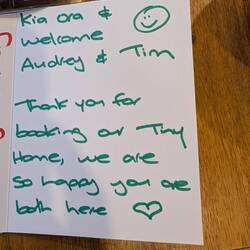 Kia ora &
welcome
Audrey & Tim
Thank you for
booking our Tiny
Home, we are
so happy you are
both here